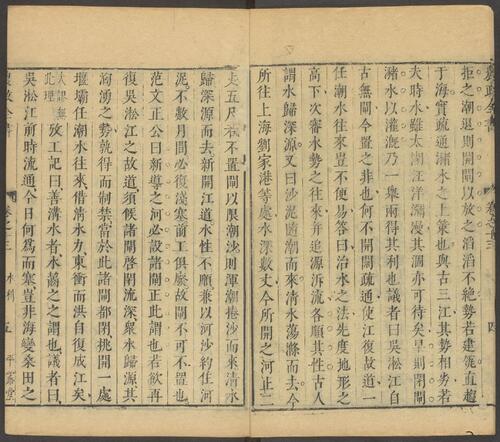 拒之潮退則開閘以放之滔滔不絕勢若建瓴直趨
于海實疏通潴水之上策也與古三江其勢相雱若
夫時水雖太湖汪洋瀰漫其涸亦可待矣旱則閉閘
潴水以灌溉乃一舉兩得其利也議者曰吳淞江自
古無閘今置之非也何不開閘疏通使江復故道一
任潮水往來豈不便易答曰治水之法先度地形之
高下次審水勢之往來并追源泝流各順其性古人
謂水歸深源又曰沙泥隨潮而來清水蕩滌而去今
所往上海劉家港等處水深數丈今所開之河止二
四
丈五尺若不置閘以限潮沙則渾潮捲沙而來清水
歸深源而去新開江道水性不順兼以河沙約住河
泥不數月間必復淺塞前工俱廢故閘不可不置也
范文正公曰新導之河必設諸閘正此謂也若欲再
復吳淞江之故道須候諸閘啓閉流深衆水歸源其
洶湧之勢就得而制禁當於此諸閘都閉挑開一處
堰壩任潮水往來借清水力東衝而洪自復成江矣
大謬無此理
攷工記曰善溝水者水齧之之謂也議者曰
吳淞江前時流通今日何為而塞豈非海變桑田之
農政全書
卷之十三
水利
五
平露堂